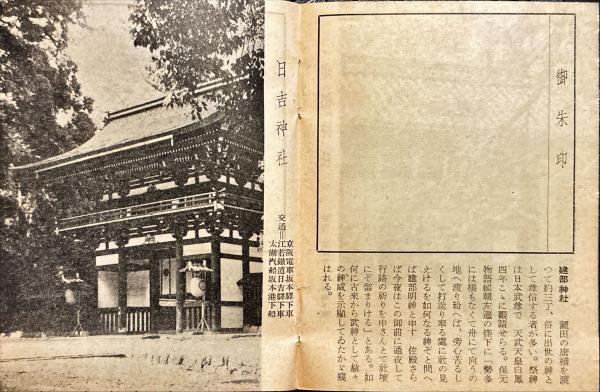 御朱印
建部神社 瀬田の唐橋を渡
つて約三丁、俗に出世の神と
して尊信する者が多い。祭神
は日本武尊で 天武天皇白鳳
四年こゝに勧請せらる。保元
物語頼朝左遷の條下に「勢多
には橋もなくて舟にて向うの
地へ渡り給へば、旁心苦るし
くして打造り奉る處に社の見
えけるを如何なる神ぞと問へ
ば建部明神と申す 佐殿さら
ば今夜はこの御前に通夜して
行路の祈りを申さんとて社壇
にぞ留まりける」とある。如
何に古來から武神として赫々
の神威を示顯してゐたかゞ窺
はれる。
日吉神社
交通=
京阪電車坂本驛下車
江若鐵道日吉驛下車
太湖汽船坂本港下船